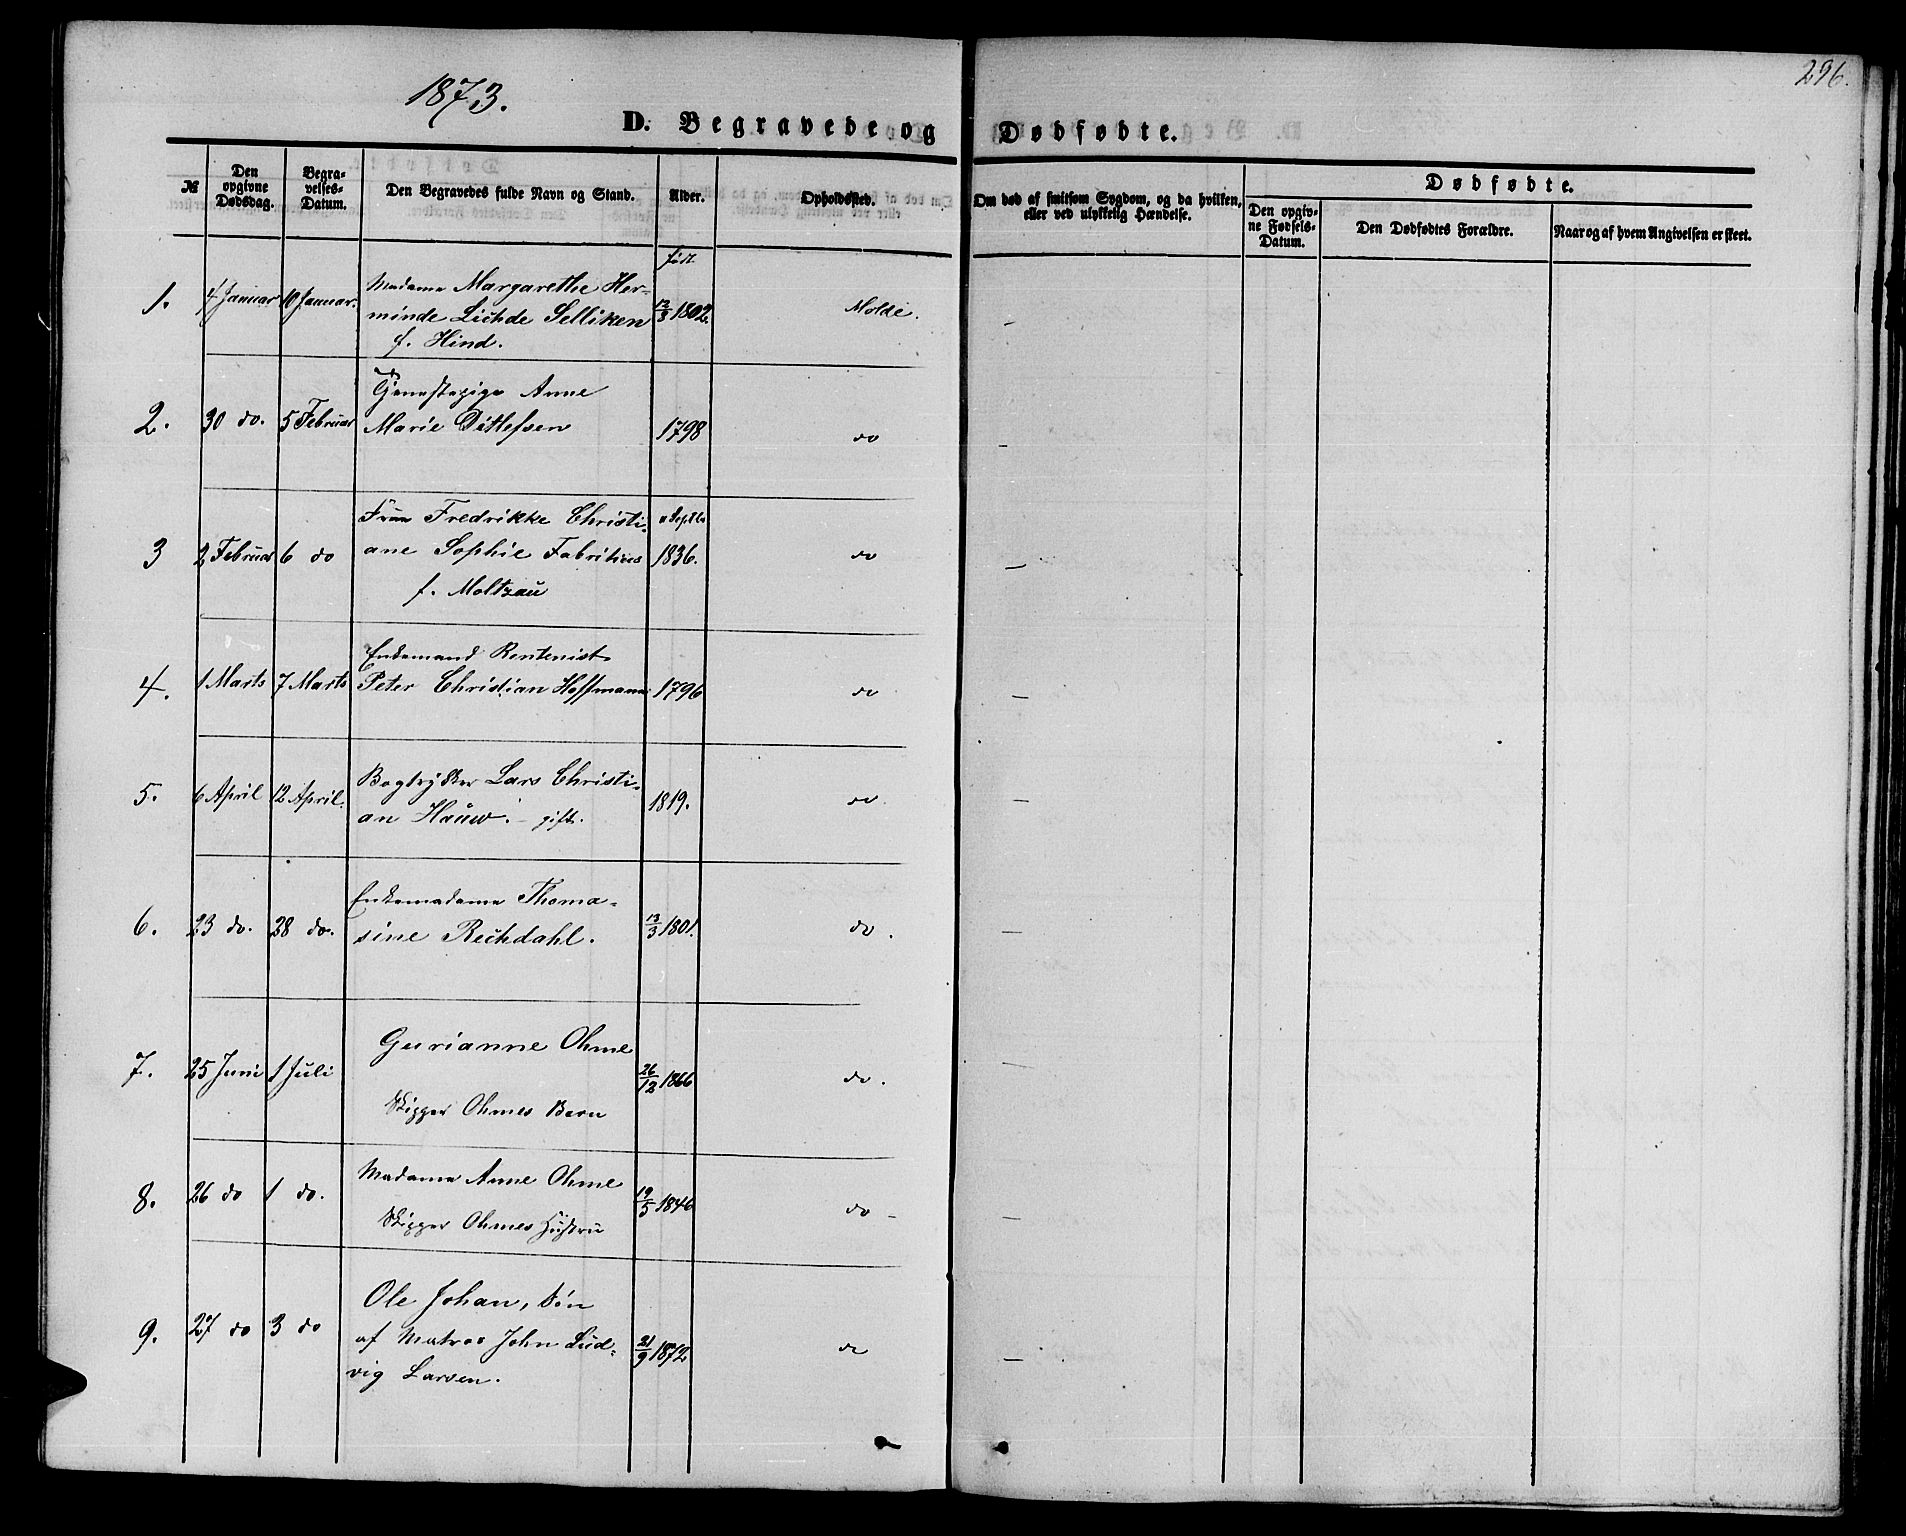 1873.
296.
D. Begravede og Dødfødte.
№
Den opgivne Dødsdag.
Begra-velses-Datum.
Den Begravedes fulde Navn og Stand.
Alder.
Opholdssted.
Om død af smitsom Sygdom, og da hvilken, eller ved ulykkelig Hændelse.
Dødfødte.
Den opgiv-ne Fødsels-Datum.
Den Dødfødtes Forældre.
Naar og af hvem Angivelsen er skeet.
født
Madame Margarethe Her-
1. 4 Januar 10 Januar. minde Lichde Selliken 12/3 1802. Molde. —
f. Hind.
Tjenestepige Anne
2. 30 do. 5 Februar Marie Ditlefsen 1798 do —
Frue Fredrikke Christi- Septbr
3 2 Februar 6 do ane Sophie Fabritius 1836. do —
f. Moltzau
Enkemand Rentenist
4. 1 Marts 7 Marts Peter Christian Hoffmann 1796 do —
Bogtrykker Lars Christi-
5. 6 April 12 April. an Hauw. – gift. 1819. do. —
Enkemadame Thoma-
6. 23 do. 28 do. sine Reckdahl. 13/3 1801. do. —
Gurianne Ohme
7. 25 Juni 1 Juli 26/12 1866 do. —
Skipper Ohmes Barn
Madame Anne Ohme
8. 26 do 1 do. 19/5 1846 do —
Skipper Ohmes Hustru
Ole Johan, Søn
9. 27 do 3 do af Matros John Lud- 21/9 1872 do —
vig Larsen.